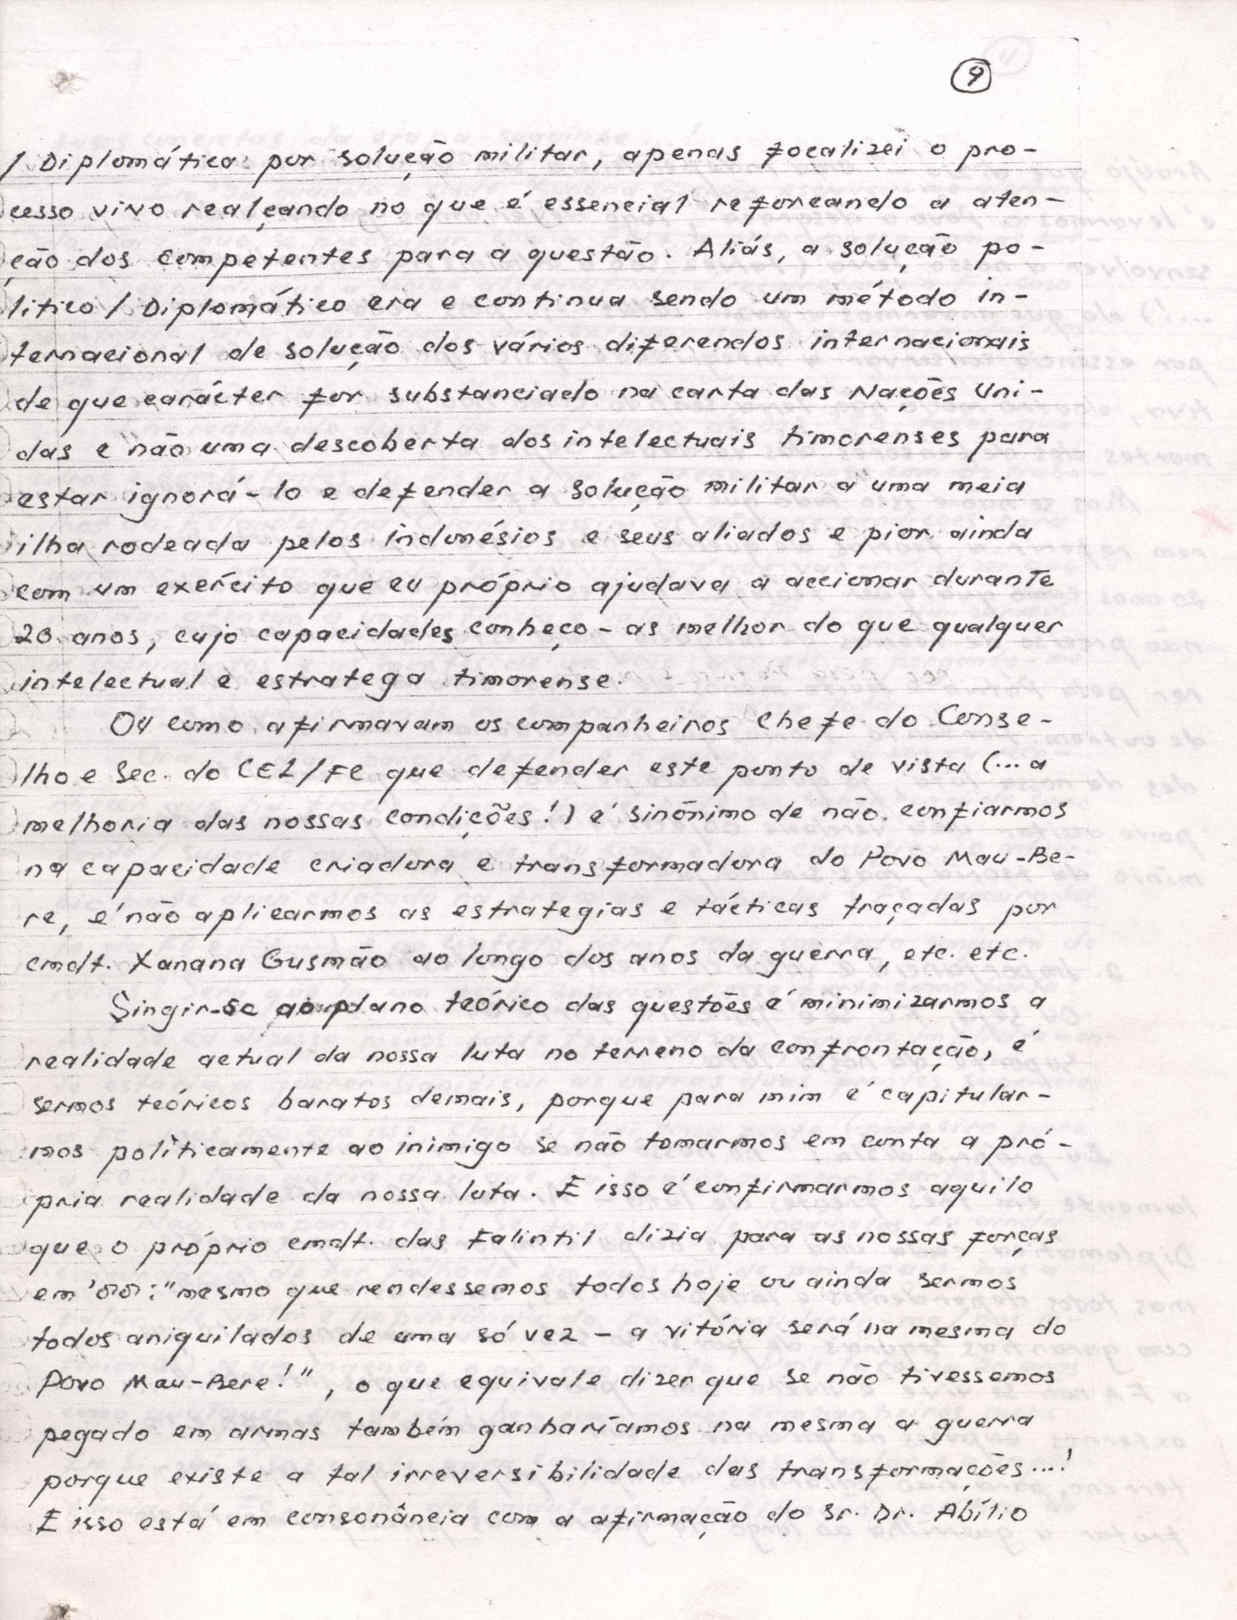 9
/ Diplomática por solução militar, apenas focalizei o pro-
cesso vivo realçando no que é essencial reforcando a aten-
ção dos competentes para a questão. Aliás, a solução po-
lítico / Diplomático era e continua sendo um método in-
ternacional de solução dos vários diferendos internacionais
de que carácter for substanciado na carta das Nações Uni-
das e não uma descoberta dos intelectuais timorenses para
estar ignorá-lo e defender a solução militar a uma meia
ilha rodeada pelos indonésios e seus aliados e pior ainda
com um exército que eu próprio ajudava a accionar durante
20 anos, cujo capacidades conheço-as melhor do que qualquer
intelectual e estratega timorense.
Ou como afirmavam os companheiros Chefe do Conse-
lho e Sec. do CEL/FE que defender este ponto de vista (... a
melhoria das nossas condições!) é sinónimo de não confiarmos
na capacidade criadora e transformadora do Povo Mau-Be-
re, é não aplicarmos as estrategias e tácticas traçadas por
cmdt. Xanana Gusmão ao longo dos anos da guerra, etc. etc.
Singir-se ao plano teórico das questões é minimizarmos a
realidade actual da nossa luta no terreno da confrontação, é
sermos teóricos baratos demais, porque para mim é capitular-
mos políticamente ao inimigo se não tomarmos em conta a pró-
pria realidade da nossa luta. E isso é confirmarmos aquilo
que o próprio cmdt. das Falintil dizia para as nossas forças
em '88: "mesmo que rendessemos todos hoje ou ainda sermos
todos aniquilados de uma só vez - a vitória será na mesma do
Povo Mau-Bere!", o que equivale dizer que se não tivessemos
pegado em armas também ganharíamos na mesma a guerra
porque existe a tal irreversibilidade das transformações...!
E isso está em consonância com a afirmação do Sr. Dr. Abílio